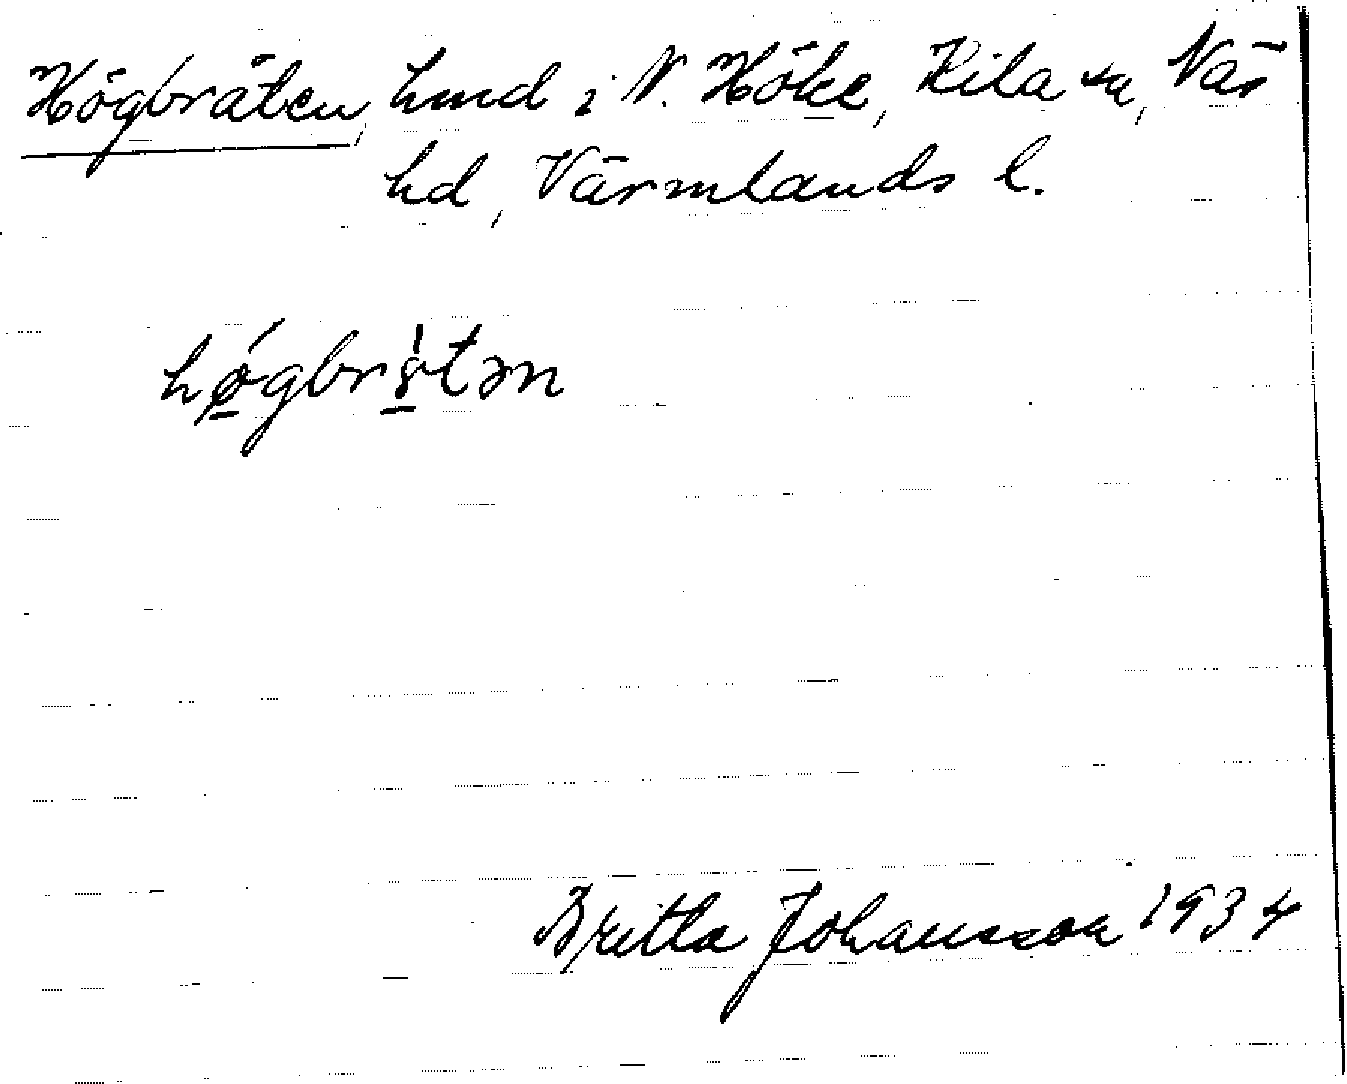 Högbråten, hmd i N. Höke, Kila sn, Näs
hd, Värmlands l.
Britta Johansson 1934